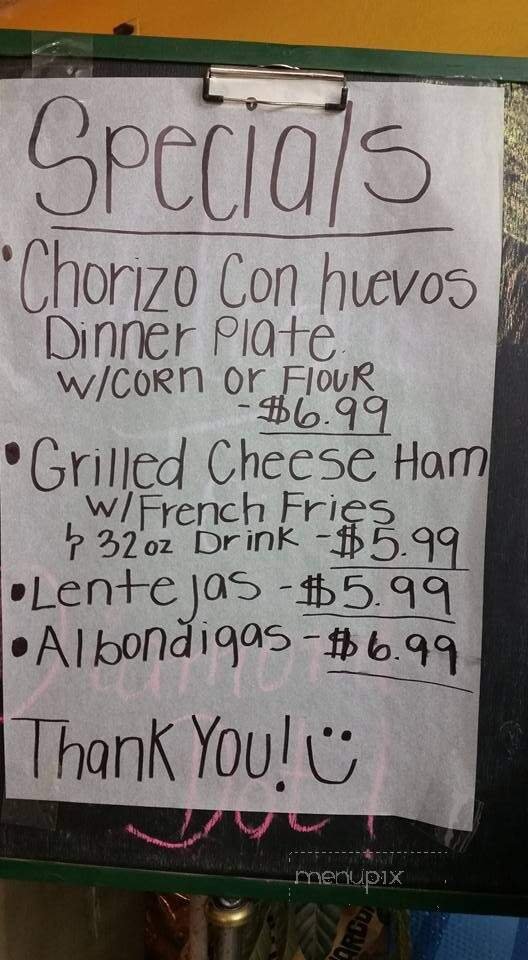 Specials
• Chorizo Con huevos
Dinner Plate
w/CORN OR FlouR
- $6.99
• Grilled Cheese Ham
w/French Fries
& 32oz Drink - $5.99
• Lentejas - $5.99
• Albondigas - $6.99
Thank You! Ü
menupix